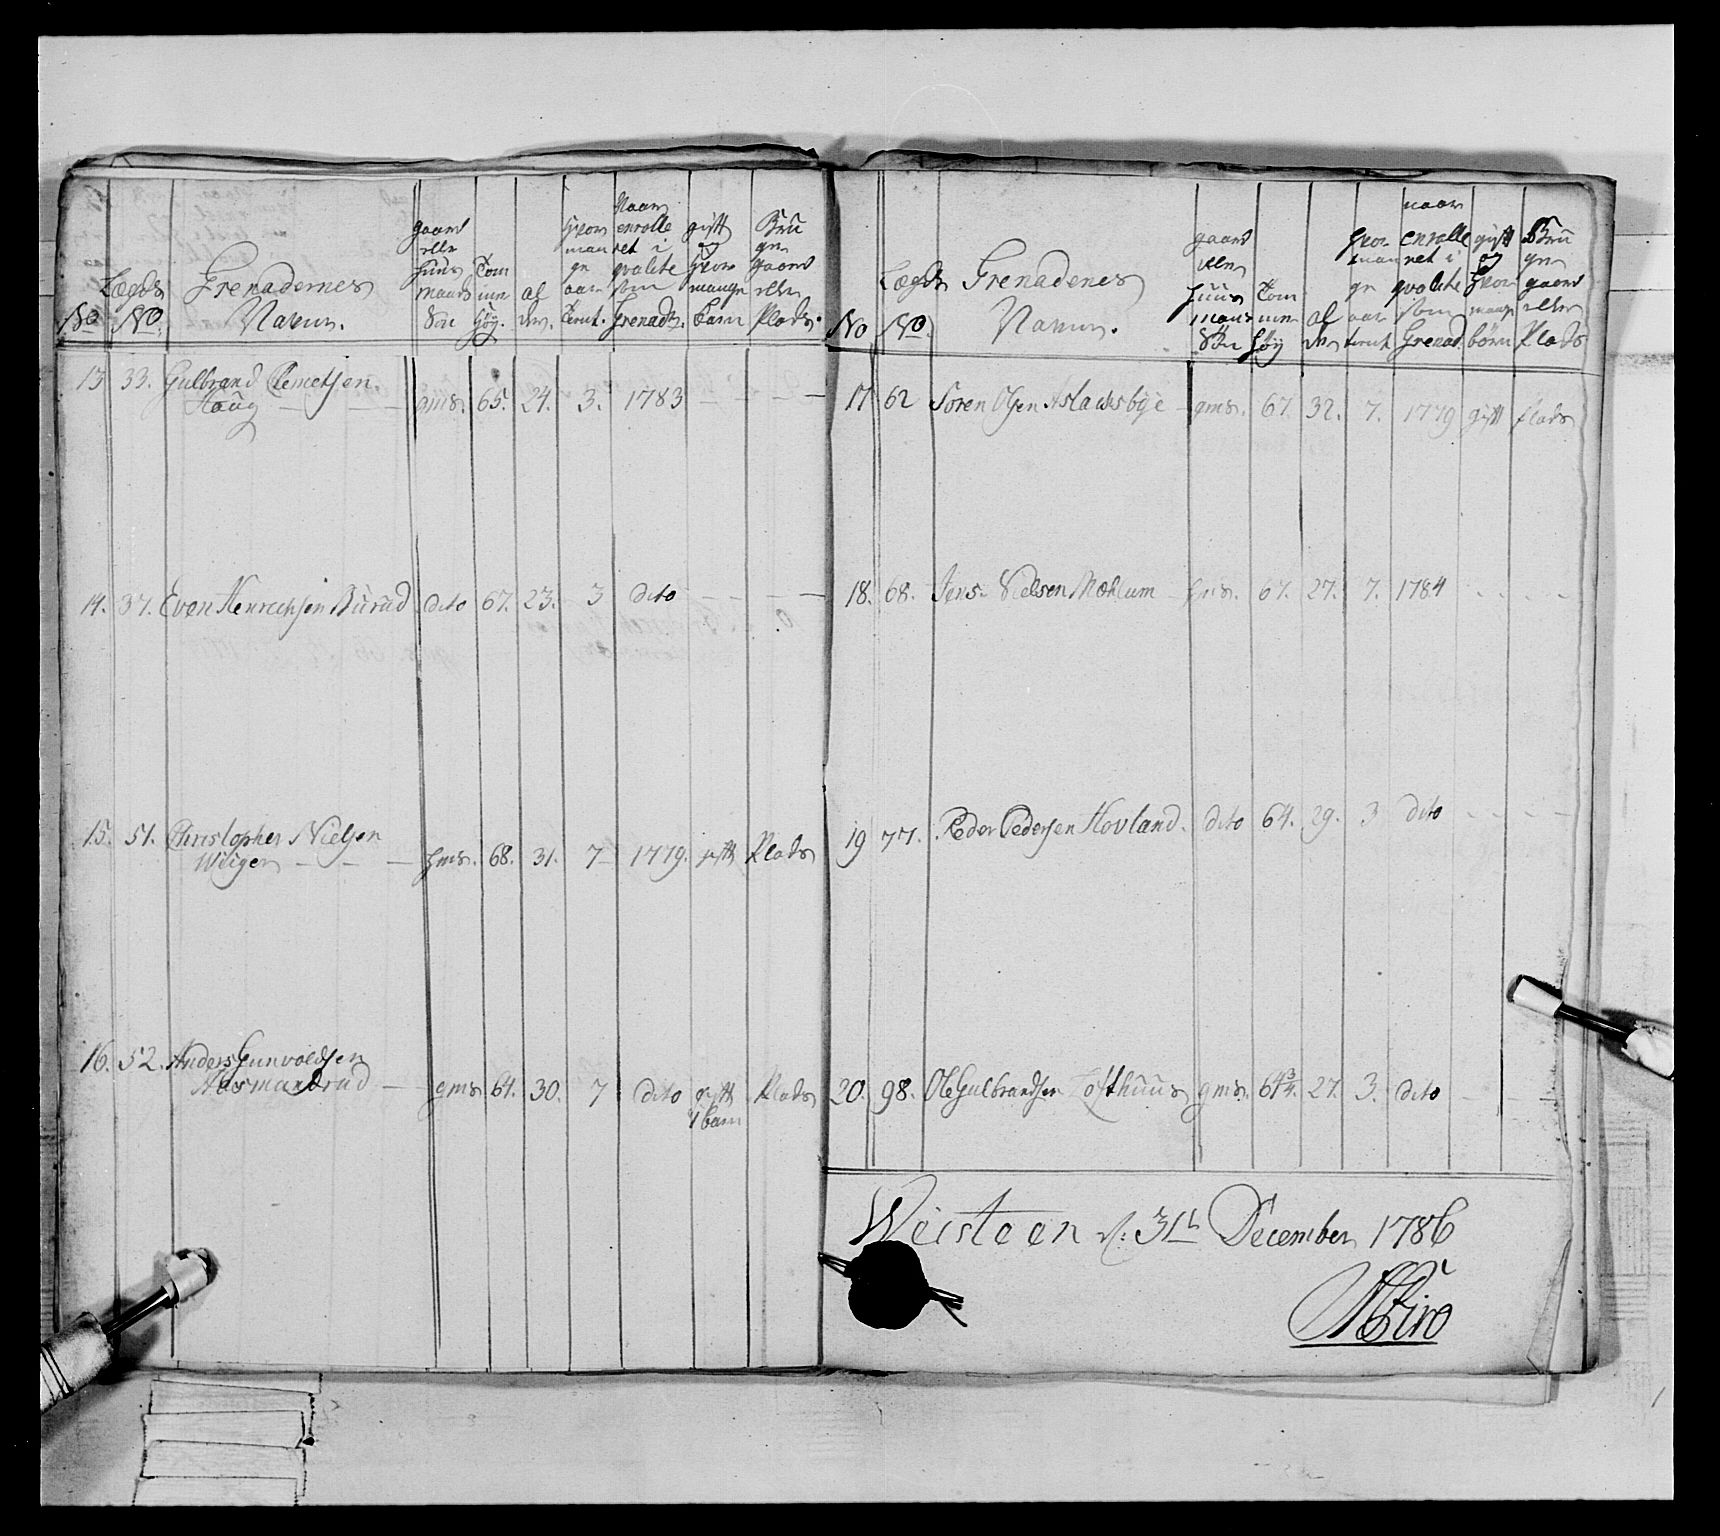 No
Lægds No
Grenadernes
Navne.
gaard eller huus mands Søn
Tom mer høy.
al der.
hvor man ge aar tient.
Naar enrolle ret i qvalite som Grenad.
gift og hvor mange barn
Bru ger gaard eller Plads.
13 33. Gulbrand Clemetsen
Haug — — gms. 65. 24. 3. 1783 — — — —
14. 37. Even Henrichsen Burud dito 67. 23. 3 dito — — — —
15. 51. Christopher Nielsen
Wiiger — — — hms. 68. 31. 7 1779. gift Plads
16. 52. Anders Gunvoldsen
Aasmandrud — gms 64. 30. 7 dito gift Plads
1 barn
No
Lægds No.
Grenadernes
Navne.
gaard eller huus mands Søn
Tom mer høy
al der
hvor man ge aar tient
naar enrolle ret i qvalite som Grenad.
gift og hvor mange børn
Bru ger gaard eller Plads
17 62 Soren Olsen Aslachsbye gms. 67. 32. 7. 1779 gift plads
18. 68. Jens Nielsen Mæhlum hms. 67. 27. 7. 1784 - - - -
19 77. Peder Pedersen Hovland. dito 64. 29. 3 dito - - - -
20. 98. Ole Gulbrandsen Lofthuus gms. 64¾. 27. 3. dito — — —
Weisteen d: 31th December 1786